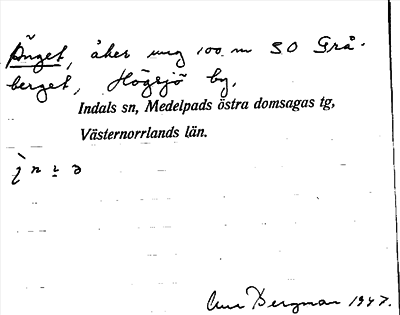 Änget, åker ung 100 m SO Grå-
berget, Högsjö by,
Indals sn, Medelpads östra domsagas tg,
Västernorrlands län.
Bergman 1947.